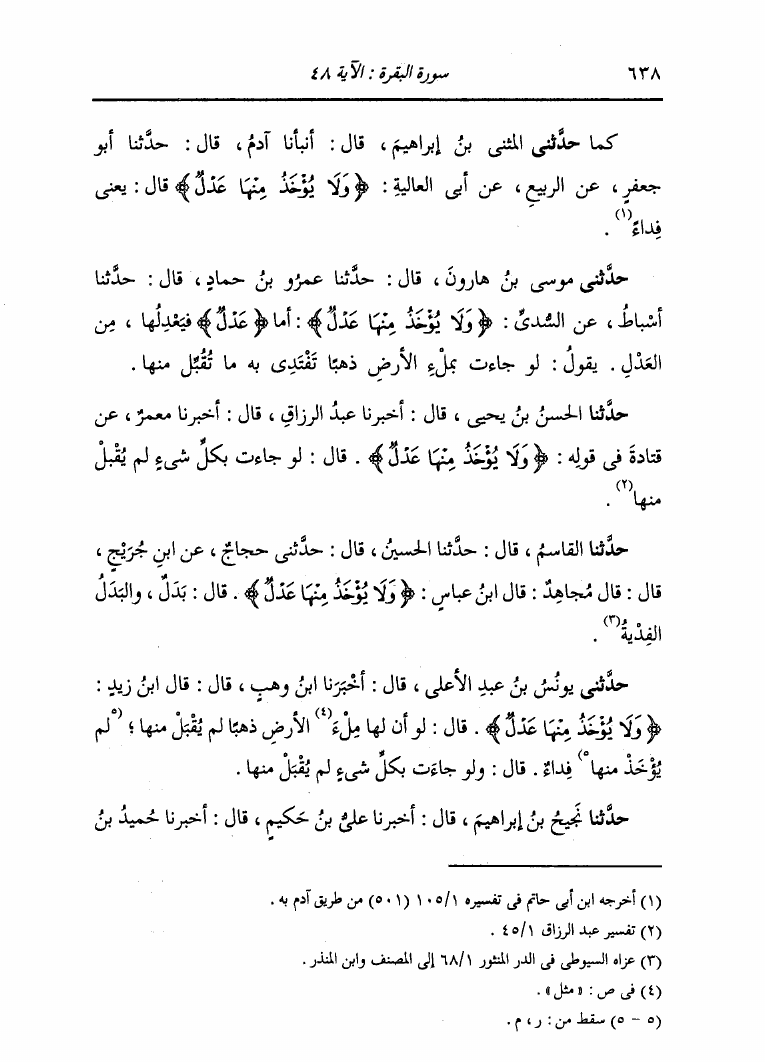 ٦٣٨
سورة البقرة : الآية ٤٨
كما حدَّثنى المثنى بنُ إبراهيمَ ، قال : أنبأنا آدمُ ، قال : حدَّثنا أبو
جعفرٍ ، عن الربيعِ ، عن أبى العاليةِ : ﴿ وَلَا يُؤْخَذُ مِنْهَا عَدْلٌ ﴾ قال : يعنى
فِداءً(١) .
حدَّثنى موسى بنُ هارونَ ، قال : حدَّثنا عمرُو بنُ حمادٍ ، قال : حدَّثنا
أسْباطُ ، عن السُّدىِّ : ﴿ وَلَا يُؤْخَذُ مِنْهَا عَدْلٌ ﴾ : أما ﴿ عَدْلٌ ﴾ فيَعْدِلُها ، مِن
العَدْلِ . يقولُ : لو جاءت بملْءِ الأرضِ ذهبًا تَفْتَدِى به ما تُقُبِّل منها .
حدَّثنا الحسنُ بنُ يحيى ، قال : أخبرنا عبدُ الرزاقِ ، قال : أخبرنا معمرٌ ، عن
قتادةَ فى قولِه : ﴿ وَلَا يُؤْخَذُ مِنْهَا عَدْلٌ ﴾ . قال : لو جاءت بكلِّ شىءٍ لم يُقْبلْ
منها(٢) .
حدَّثنا القاسمُ ، قال : حدَّثنا الحسينُ ، قال : حدَّثنى حجاجٌ ، عن ابنِ جُرَيْجٍ ،
قال : قال مُجاهِدٌ : قال ابنُ عباسٍ : ﴿ وَلَا يُؤْخَذُ مِنْهَا عَدْلٌ ﴾ . قال : بَدَلٌ ، والبَدَلُ
الفِدْيةُ(٣) .
حدَّثنى يونُسُ بنُ عبدِ الأعلى ، قال : أخْبَرَنا ابنُ وهبٍ ، قال : قال ابنُ زيدٍ :
﴿ وَلَا يُؤْخَذُ مِنْهَا عَدْلٌ ﴾ . قال : لو أن لها مِلْءَ(٤) الأرضِ ذهبًا لم يُقْبَلْ منها ؛ (٥لم
يُؤْخَذْ منها٥) فِداءٌ . قال : ولو جاءَت بكلِّ شىءٍ لم يُقْبَلْ منها .
حدَّثنا نَجِيحُ بنُ إبراهيمَ ، قال : أخبرنا علىُّ بنُ حَكيمٍ ، قال : أخبرنا حُميدُ بنُ
(١) أخرجه ابن أبى حاتم فى تفسيره ١٠٥/١ (٥٠١) من طريق آدم به .
(٢) تفسير عبد الرزاق ٤٥/١ .
(٣) عزاه السيوطى فى الدر المنثور ٦٨/١ إلى المصنف وابن المنذر .
(٤) فى ص : « مثل » .
(٥ - ٥) سقط من : ر ، م .